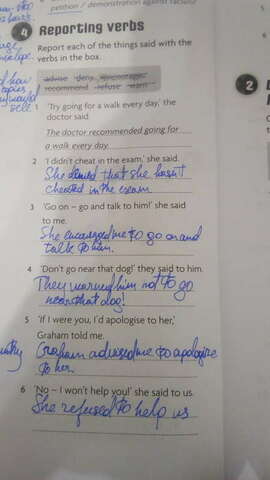 petition / demonstration against racism
4 Reporting verbs
Report each of the things said with
verbs in the box.
advise deny encourage
recommend refuse warn
1 'Try going for a walk every day,' the
doctor said.
The doctor recommended going for
a walk every day.
2 'I didn't cheat in the exam,' she said.
She denied that she hasn't
cheated in the exam.
3 'Go on – go and talk to him!' she said
to me.
She encouraged me to go on and
talk to him.
4 'Don't go near that dog!' they said to him.
They warning him not to go
near that dog!
5 'If I were you, I'd apologise to her,'
Graham told me.
Graham advised me to apologize
to her.
6 'No – I won't help you!' she said to us.
She refused to help us
2